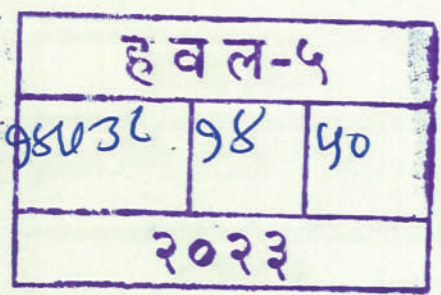 ह व ल-५
१४५३८ १४ ५०
२०२३